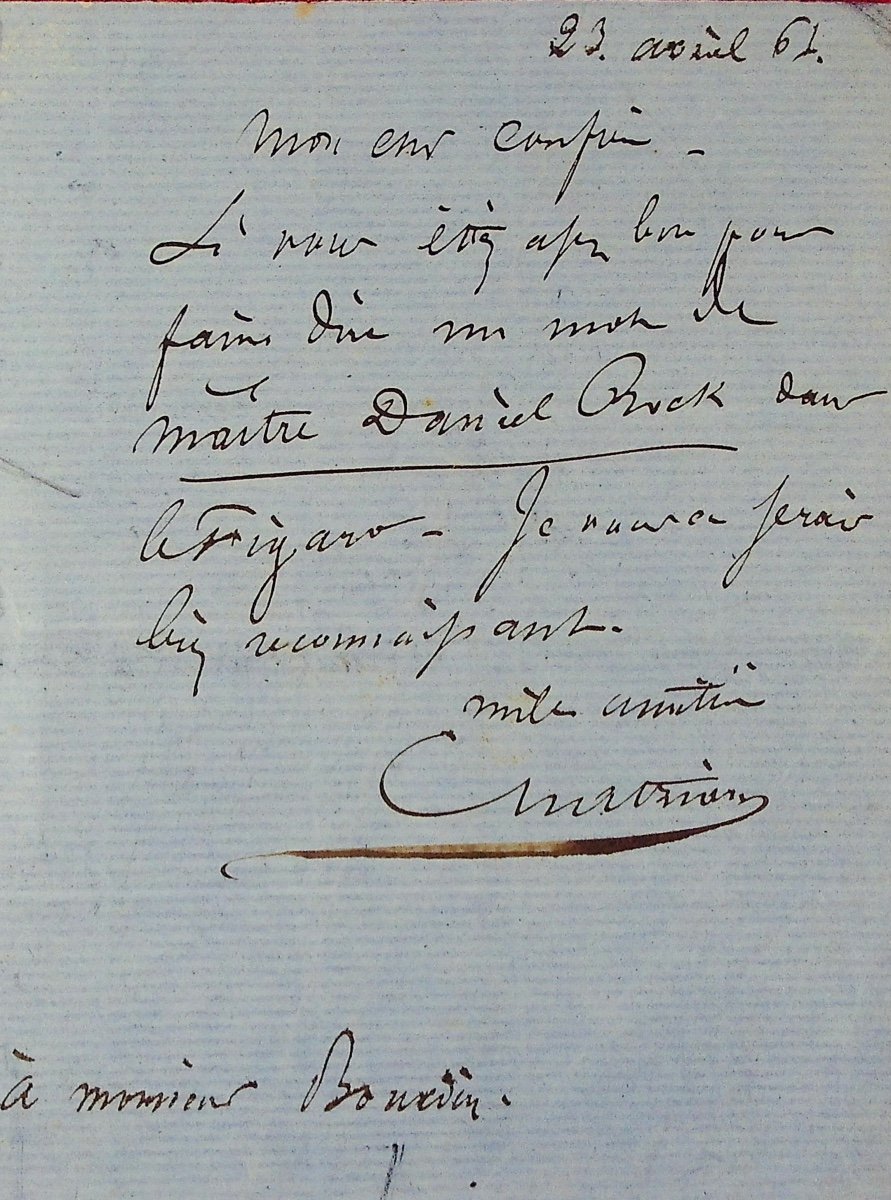 23. avril 61.
Mon cher confrère –
Si vous étiez assez bon pour
faire dire un mot de
Maître Daniel Rock dans
le Figaro – Je vous en serais
bien reconnaissant.
mille amitiés
Chatrian
à monsieur Bourdin.